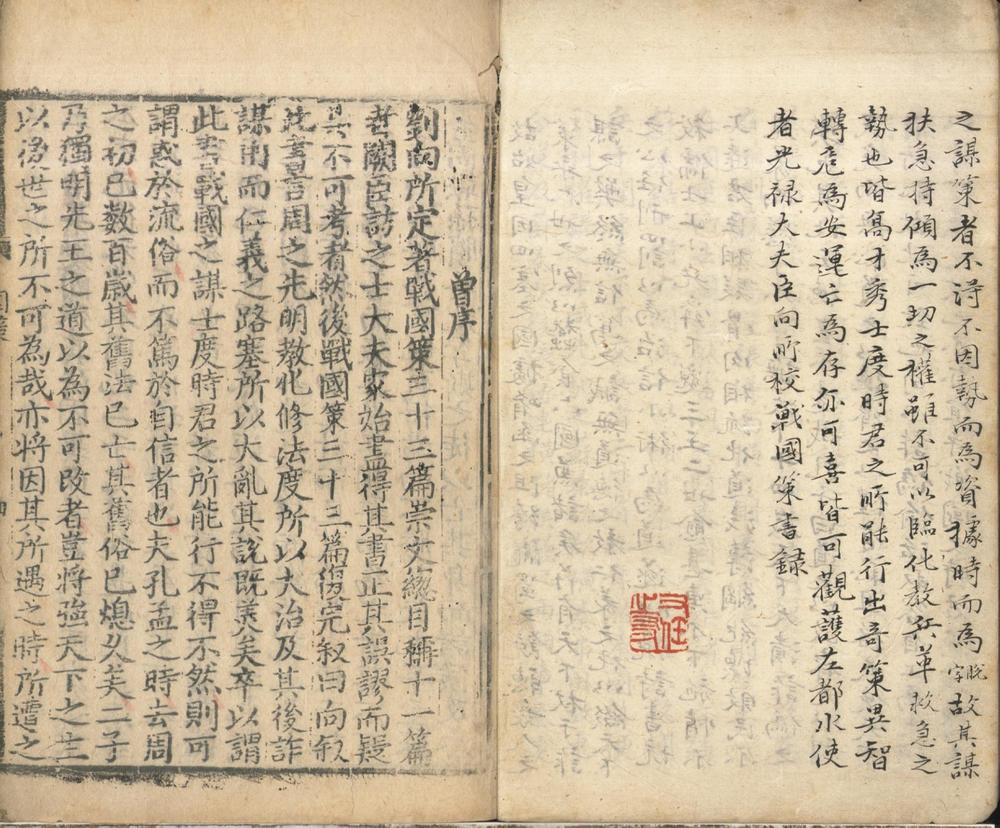 之謀策者不淂不因勢而為資據時而為脫字故其謀
扶急持傾為一切之權雖不可以臨化教兵革救急之
勢也皆髙才秀士度時君之所能行出奇策異智
轉危為安運亡為存亦可喜皆可觀護左都水使
者光禄大夫臣向所校戰國策書録
曽序
劉向所定著戰國策三十三篇崇文緫目稱十一篇
者闕臣訪之士大夫家始盡得其書正其誤謬而疑
其不可考者然後戰國策三十三篇復完叙曰向叙
此書言周之先明教化修法度所以大治及其後詐
謀用而仁義之路塞所以大亂其說既美矣卒以謂
此書戰國之謀士度時君之所能行不得不然則可
謂惑於流俗而不篤於自信者也夫孔孟之時去周
之初已數百歲其舊法已亡其舊俗已熄久矣二子
乃獨明先王之道以為不可改者豈將強天下之主
以後世之所不可為哉亦將因其所遇之時所遭之